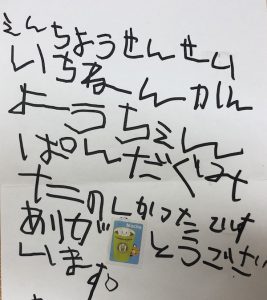 えんちょうせんせい
いちねーんかん
よーうちえん
ぱんだぐみ
たのしかったです
ありがとうござい
います。